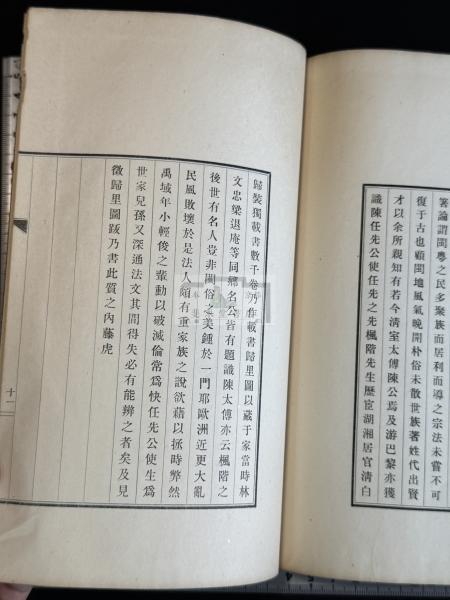 箸論謂閩粵之民多聚族而居利而導之宗法未嘗不可
復于古也顧閩地風氣晚開朴俗未散世族著姓代出賢
才以余所親知有若今清室太傅陳公焉及游巴黎亦獲
識陳任先公使任先之先楓階先生歷宦湖湘居官清白
歸裝獨載書數千卷乃作載書歸里圖以藏于家當時林
文忠梁退庵等同鄉名公皆有題識陳太傅亦云楓階之
後世有名人豈非閩俗之美鍾於一門耶歐洲近更大亂
民風敗壞於是法人頗有重家族之說欲藉以拯時弊然
禹域年小輕俊之輩動以破滅倫常為快任先公使生為
世家兒孫又深通法文其間得失必有能辨之者矣及見
徵歸里圖跋乃書此質之內藤虎
十一